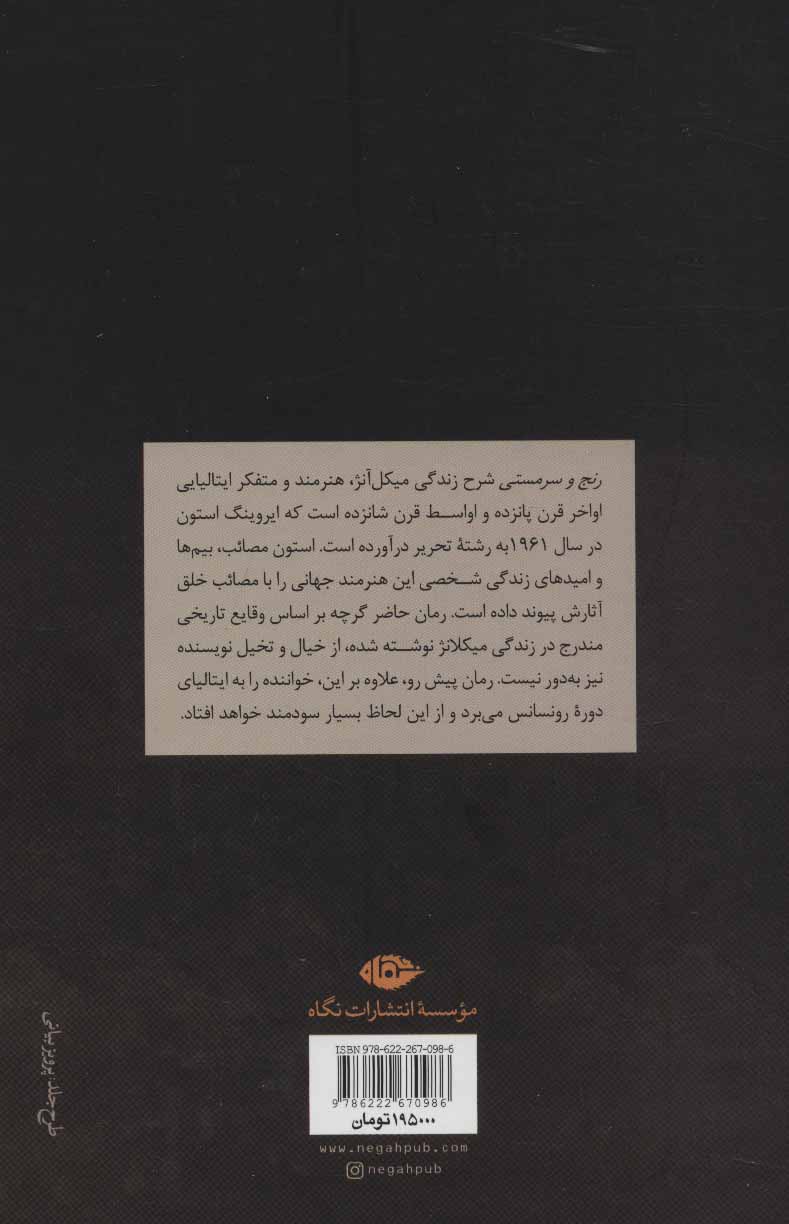 رنج و سرمستی شرح زندگی میکل‌آنژ، هنرمند و متفکر ایتالیایی
اواخر قرن پانزده و اواسط قرن شانزده است که ایروینگ استون
در سال ۱۹۶۱ به رشتهٔ تحریر درآورده است. استون مصائب، بیم‌ها
و امیدهای زندگی شخصی این هنرمند جهانی را با مصائب خلق
آثارش پیوند داده است. رمان حاضر گرچه بر اساس وقایع تاریخی
مندرج در زندگی میکلانژ نوشته شده، از خیال و تخیل نویسنده
نیز به‌دور نیست. رمان پیش رو، علاوه بر این، خواننده را به ایتالیای
دورهٔ رونسانس می‌برد و از این لحاظ بسیار سودمند خواهد افتاد.
نگاه
مؤسسهٔ انتشارات نگاه
ISBN 978-622-267-098-6
9 786222 670986
۱۹۵۰۰۰ تومان
www.negahpub.com
negahpub
طرح جلد: پرویز بیانی